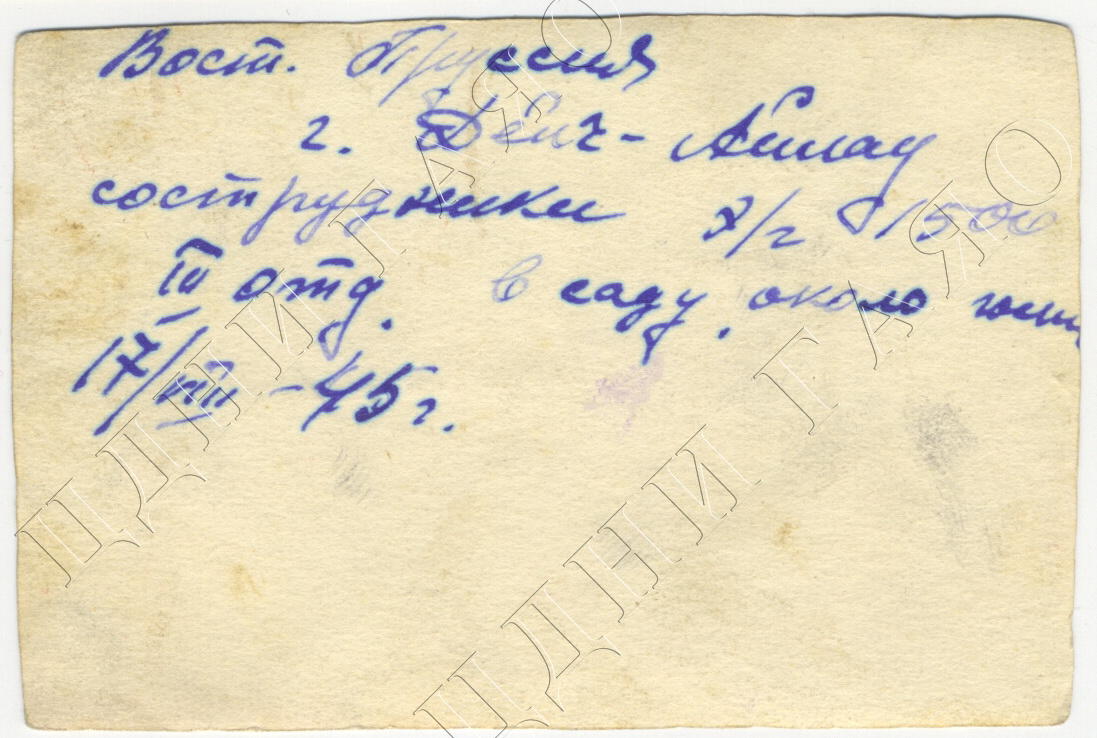 Вост. Пруссия
г. Дейч-Айлау
сотрудники э/г 1500
III отд. в саду, около
17/VIII-45 г.
ЦДНИ ГАЯО
ЦДНИ ГАЯО